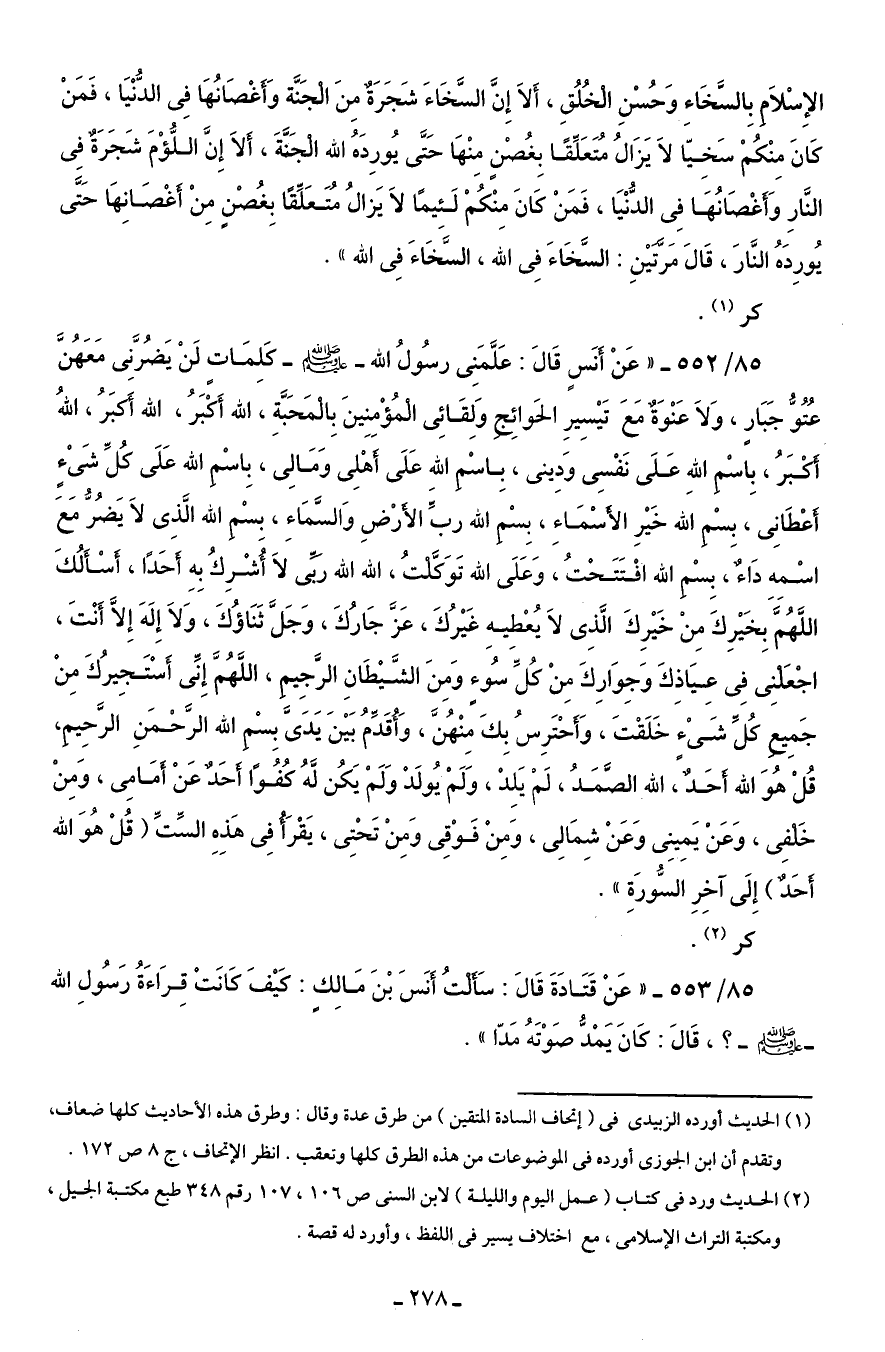 الإِسْلاَمِ بِالسَّخَاءِ وَحُسْنِ الْخُلُقِ ، أَلاَ إِنَّ السَّخَاءَ شَجَرَةٌ مِنَ الْجَنَّةِ وَأَغْصَانُهَا فِى الدُّنْيَا ، فَمَنْ
كَانَ مِنْكُمْ سَخِيّا لاَ يَزَالُ مُتَعَلِّقًا بِغُصْنٍ مِنْهَا حَتَّى يُورِدَهُ الله الْجَنَّةَ ، أَلاَ إِنَّ اللُّؤْمَ شَجَرَةٌ فِى
النَّارِ وَأَغْصَانُهَا فِى الدُّنْيَا ، فَمَنْ كَانَ مِنْكُمْ لَئِيمًا لاَ يَزَالُ مُتَعَلِّقًا بِغُصْنٍ مِنْ أَغْصَانِهَا حَتَّى
يُورِدَهُ النَّارَ ، قَالَ مَرَّتَيْنِ : السَّخَاءَ فِى الله ، السَّخَاءَ فِى الله » .
كر (١) .
٨٥/ ٥٥٢ ـ « عَنْ أَنَسٍ قَالَ : عَلَّمَنِى رسُولُ الله ـ ﷺ ـ كَلِمَاتٍ لَنْ يَضُرَّنِى مَعَهُنَّ
عُتُوُّ جَبَارٍ ، وَلاَ عَنْوَةٌ مَعَ تَيْسِيرِ الحَوائِجِ وَلِقَائِى الْمُؤْمِنِينَ بِالْمَحَبَّةِ ، الله أَكْبَرُ ، الله أَكبَرُ ، اللهُ
أَكْبَرُ ، بِاسْمِ الله عَلَى نَفْسِى وَدِينِى ، بِاسْمِ الله عَلَى أَهْلِى وَمَالِى ، بِاسْمِ الله عَلَى كُلِّ شَىْءٍ
أَعْطَانِى ، بِسْمِ الله خَيْرِ الأَسْمَاءِ ، بِسْمِ الله رَبِّ الأَرْضِ وَالسَّمَاءِ ، بِسْمِ الله الَّذِى لاَ يَضُرُّ مَعَ
اسْمِهِ دَاءٌ ، بِسْمِ الله افْتَتَحْتُ ، وَعَلَى الله تَوَكَّلْتُ ، الله الله رَبِّى لاَ أُشْرِكُ بِهِ أَحَدًا ، أَسْأَلُكَ
اللَّهُمَّ بِخَيْرِكَ مِنْ خَيْرِكَ الَّذِى لاَ يُعْطِيهِ غَيْرُكَ ، عَزَّ جَارُكَ ، وَجَلَّ ثَنَاؤُكَ ، وَلاَ إِلَهَ إِلاَّ أَنْتَ ،
اجْعَلْنِى فِى عِيَاذِكَ وَجِوَارِكَ مِنْ كُلِّ سُوءٍ وَمِنَ الشَّيْطَانِ الرَّجِيمِ ، اللَّهُمَّ إِنِّى أَسْتَجِيرُكَ مِنْ
جَمِيعِ كُلِّ شَىْءٍ خَلَقْتَ ، وَأَحْتَرِسُ بِكَ مِنْهُنَّ ، وَأُقَدِّمُ بَيْنَ يَدَىَّ بِسْمِ الله الرَّحْمَنِ الرَّحِيمِ،
قُلْ هُوَ الله أَحَدٌ ، الله الصَّمَدُ ، لَمْ يَلِدْ ، وَلَمْ يُولَدْ وَلَمْ يَكُن لَّهُ كُفُوًا أَحَدٌ عَنْ أَمَامِى ، وَمِنْ
خَلْفِى ، وَعَنْ يَمِينِى وَعَنْ شِمَالِى ، وَمِنْ فَوْقِى وَمِنْ تَحْتِى ، يَقْرَأُ فِى هَذِهِ السِّتِّ ( قُلْ هُوَ الله
أَحَدٌ ) إِلَى آخِرِ السُّورَةِ » .
كر (٢) .
٨٥/ ٥٥٣ ـ « عَنْ قَتَادَةَ قَالَ : سَأَلْتُ أَنَسَ بْنَ مَالِكٍ : كَيْفَ كَانَتْ قِرَاءَةُ رَسُولِ الله
ـ ﷺ ـ ؟ ، قَالَ : كَانَ يَمْدُّ صَوْتَهُ مَدّا » .
(١) الحديث أورده الزبيدى فى ( إتحاف السادة المتقين ) من طرق عدة وقال : وطرق هذه الأحاديث كلها ضعاف،
وتقدم أن ابن الجوزى أورده فى الموضوعات من هذه الطرق كلها وتعقب . انظر الإتحاف ، ج ٨ ص ١٧٢ .
(٢) الحديث ورد فى كتاب ( عمل اليوم والليلة ) لابن السنى ص ١٠٦ ، ١٠٧ رقم ٣٤٨ طبع مكتبة الجيل ،
ومكتبة التراث الإسلامى ، مع اختلاف يسير فى اللفظ ، وأورد له قصة .
ـ ٢٧٨ ـ